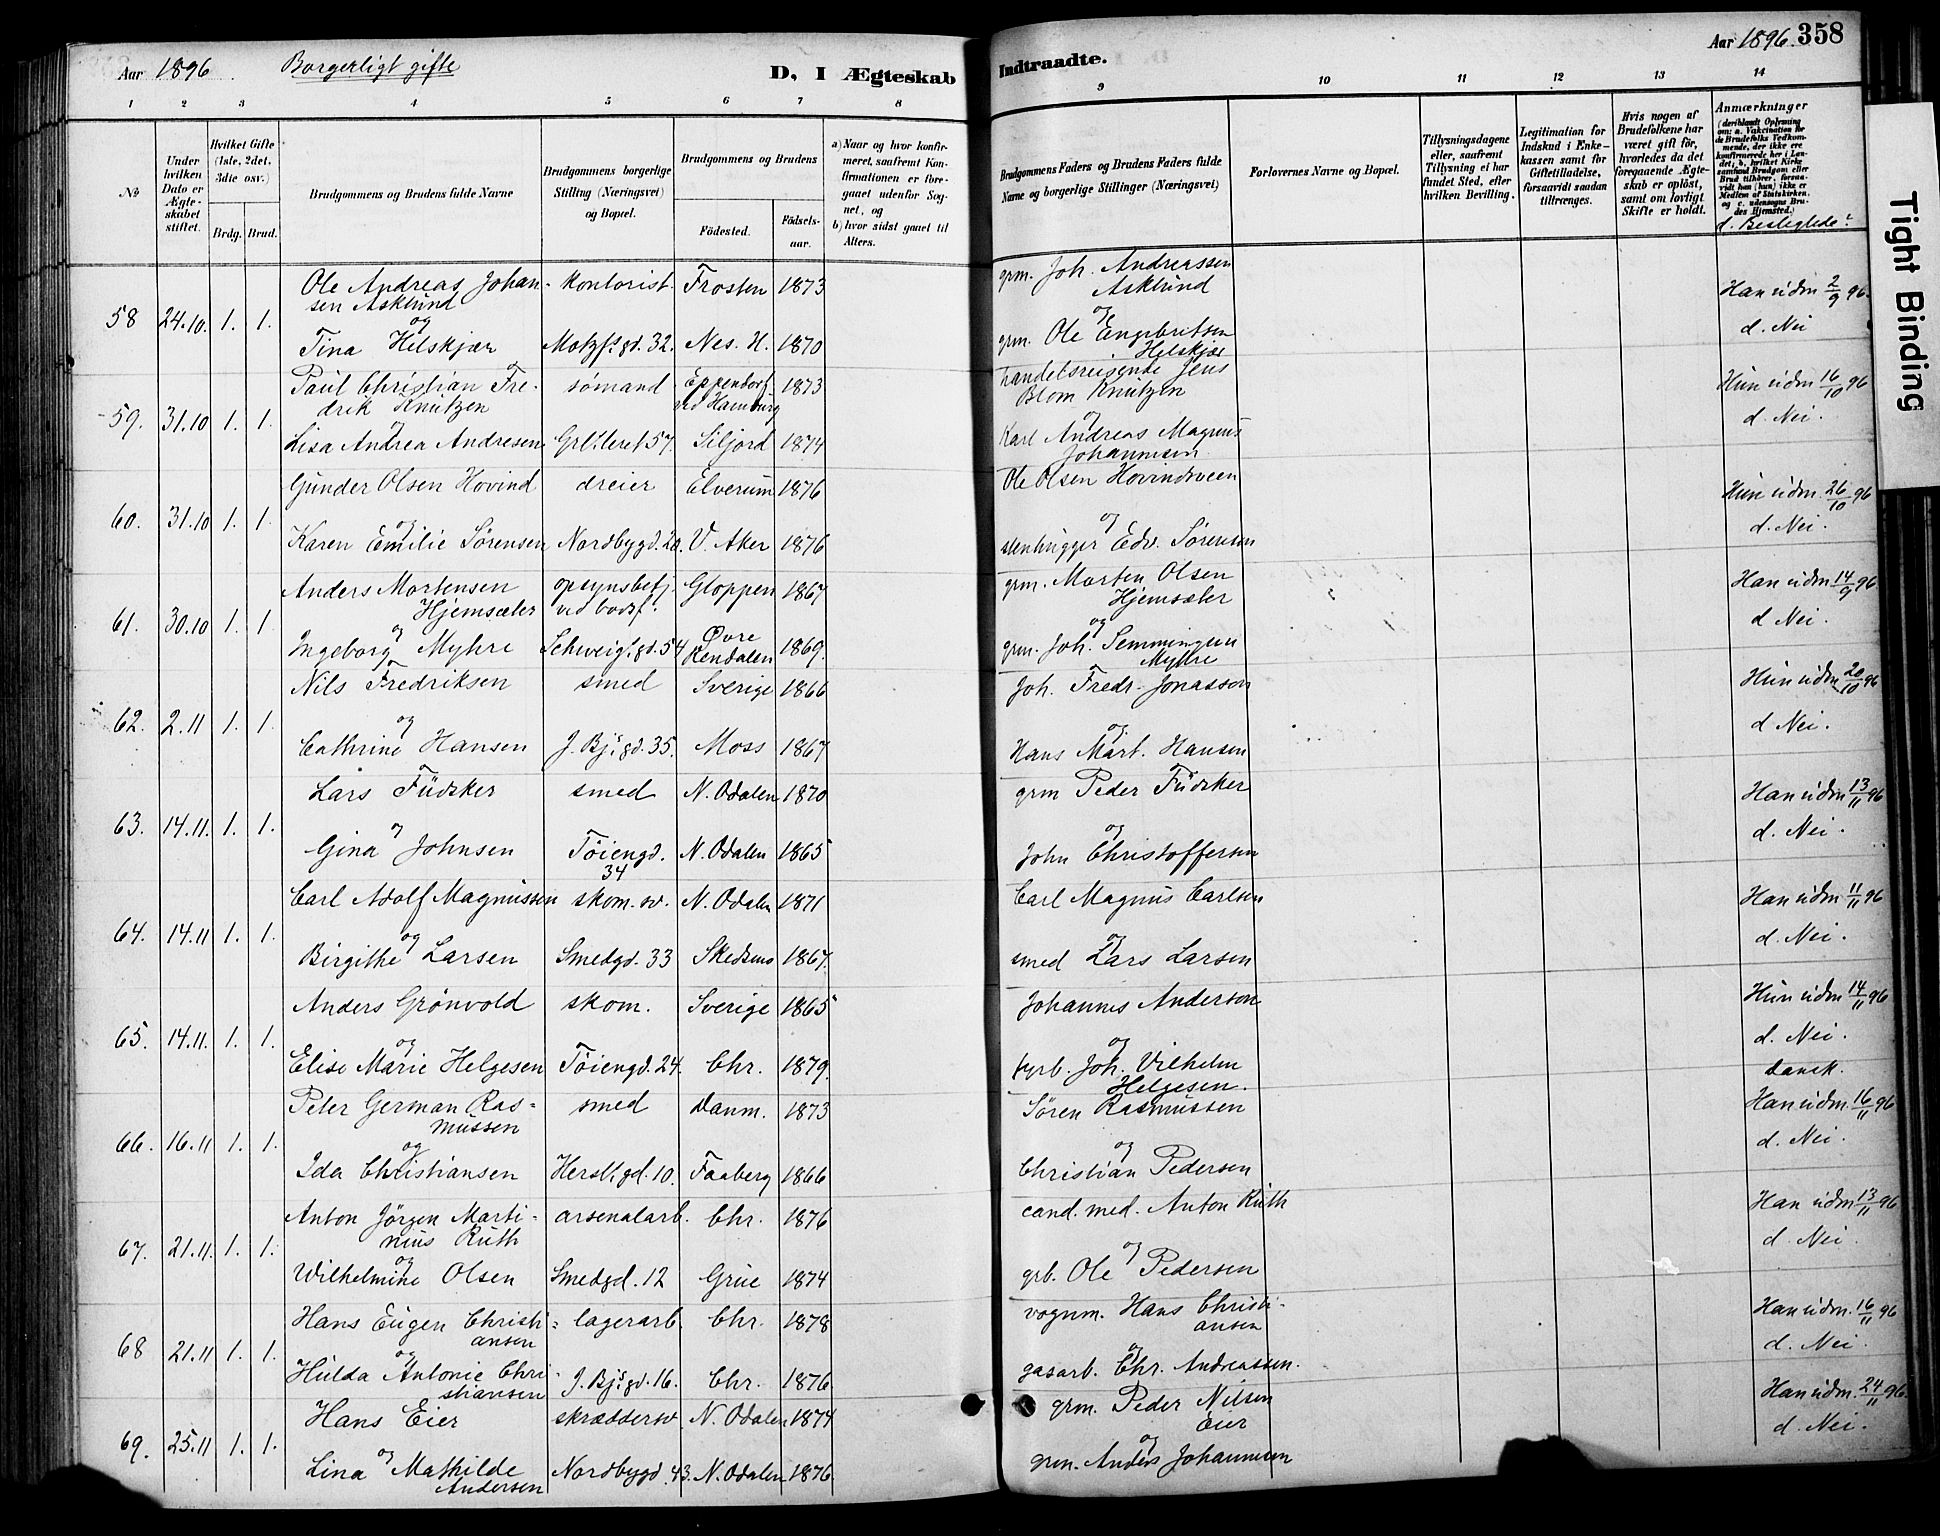 Aar 1896. Borgerligt gifte D, I Ægteskab
Indtraadte. Aar 1896. 358
1 2 3 4 5 6 7 8 9 10 11 12 13 14
No
Under hvilken Dato er Ægteskabet stiftet.
Hvilket Gifte (1ste, 2det, 3die osv.)
Brdg. Brud.
Brudgommens og Brudens fulde Navne
Brudgommens borgerlige Stilling (Næringsvei) og Bopæl.
Brudgommens og Brudens
Födested. Födselsaar.
a) Naar og hvor konfirmeret, saafremt Konfirmationen er foregaaet udenfor Sognet, og
b) hvor sidst gaaet til Alters.
Brudgommens Faders og Brudens Faders fulde Navne og borgerlige Stillinger (Næringsvei)
Forlovernes Navne og Bopæl.
Tillysningsdagene eller, saafremt Tillysning ei har fundet Sted, efter hvilken Bevilling.
Legitimation for Indskud i Enkekassen samt for Giftetilladelse, forsaavidt saadan tiltrænges.
Hvis nogen af Brudefolkene har været gift før, hvorledes da det foregaaende Ægteskab er opløst, samt om lovligt Skifte er holdt.
Anmærkninger (deriblandt Oplysning om: a. Vakcination for de Brudefolks Vedkommende, der ikke ere konfirmerede her i Landet; b. hvilket Kirkesamfund Brudgom eller Brud tilhører, forsaavidt han (hun) ikke er Medlem af Statskirken, og c. udensogns Brudes Hjemsted.)
d. Beslegtede?
58 24.10. 1. 1. Ole Andreas Johansen Asklund kontorist. Frosten 1873 grm. Joh. Andreassen Asklund Han udm 2/9 96.
og Tina Helskjær Motzf.s gd. 32. Nes. H. 1870 og grm. Ole Engebretsen Helskjær d. Nei
59. 31.10 1. 1. Paul Christian Fredrik Knutzen sømand Eppendorf ved Hamburg 1873 handelsreisende Jens Blom Knutzen Hun udm 16/10 96
og Lisa Andrea Andresen Grl.leret 57. Siljord 1874 og Karl Andreas Magnus Johannesen d. Nei.
60. 31.10 1. 1. Gunder Olsen Hovind dreier Elverum 1876 Ole Olsen Hovindsveen Hun udm. 26/10 96
og Karen Emilie Sørensen Nordbygd. 20. V. Aker 1876 og stenhugger Edv. Sørensen d. Nei.
61. 30.10 1. 1 Anders Mortensen Hjemsæter opsynsbetj. ved bodsf. Gloppen 1867 grm. Morten Olsen Hjemsæter Han udm 14/9 96.
og Ingeborg Myhre Schweig.s gd. 54 Øvre Rendalen 1869. og grm. Joh. Semmingsen Myhre d Nei.
62. 2.11 1. 1. Nils Fredriksen smed Sverige 1866 Joh. Fredr. Jonasson Hun udm 20/10 96
og Cathrine Hansen J. Bj.s gd. 35. Moss 1867 og Hans Mart. Hansen d Nei.
63. 14.11. 1. 1. Lars Fudsker smed N. Odalen 1870 grm Peder Fudsker Han udm 13/11 96
og Gina Johnsen Töiengd. 34 N. Odalen 1865 og John Christoffersen d. Nei.
64. 14.11 1. 1. Carl Adolf Magnussen skom. sv. N. Odalen 1871 Carl Magnus Carlsen Han udm 11/11 96
og Birgithe Larsen Smedgd. 33 Skedsmo 1867. og smed Lars Larsen d. Nei.
65. 14.11. 1. 1. Anders Grönvold skom. Sverige 1865 Johannes Anderson Hun udm 14/11 96
og Elise Marie Helgesen Töiengd. 24. Chr. 1879. og tyrb. Joh. Vilhelm Helgesen. d. Nei.
66. 16.11 1. 1. Peter German Rasmussen smed Danm. 1873 Søren Rasmussen dansk. Han udm. 16/11 96
og Ida Christiansen Hersl. gd. 10. Faaberg 1866 og Christian Pedersen d. Nei.
67. 21.11. 1. 1. Anton Jörgen Martinius Ruth arsenalarb. Chr. 1876 cand. med. Anton Ruth Han udm 13/11 96
og Wilhelmine Olsen Smedgd. 12 Grue 1874 og grb. Ole Pedersen d. Nei.
68 21.11 1. 1. Hans Eugen Christiansen lagerarb. Chr. 1878 vognm. Hans Christiansen Han udm. 16/11 96
og Hulda Antonie Christiansen J. Bj.s gd. 16. Chr. 1876 og gasarb. Chr. Andreassen. d. Nei.
69. 25.11 1. 1. Hans Eier skræddersv. N. Odalen 1874 grm. Peder Nilsen Eier Han udm. 24/11 96.
og Lina Mathilde Andersen Nordbygd. 43. N. Odalen 1876. og grm. Anders Johannesen d. Nei.
Tight Binding